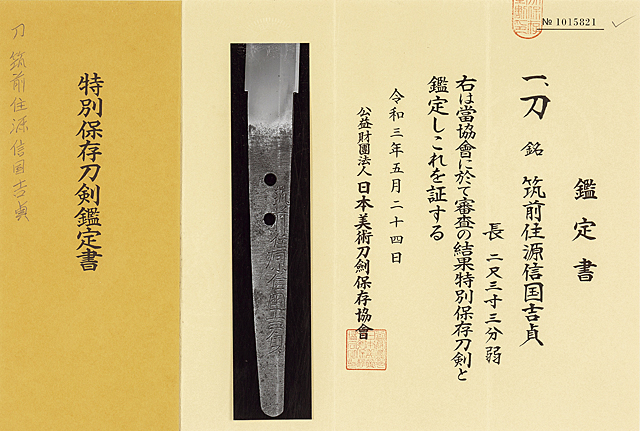 № 1015821
鑑定書
一、刀 銘 筑前住源信国吉貞
長 二尺三寸三分弱
右は當協會に於て審査の結果特別保存刀剣と
鑑定しこれを証する
令和三年五月二十四日
公益財團法人 日本美術刀剣保存協會
特別保存刀剣鑑定書
刀 筑前住源信国吉貞
筑前住源信国吉貞